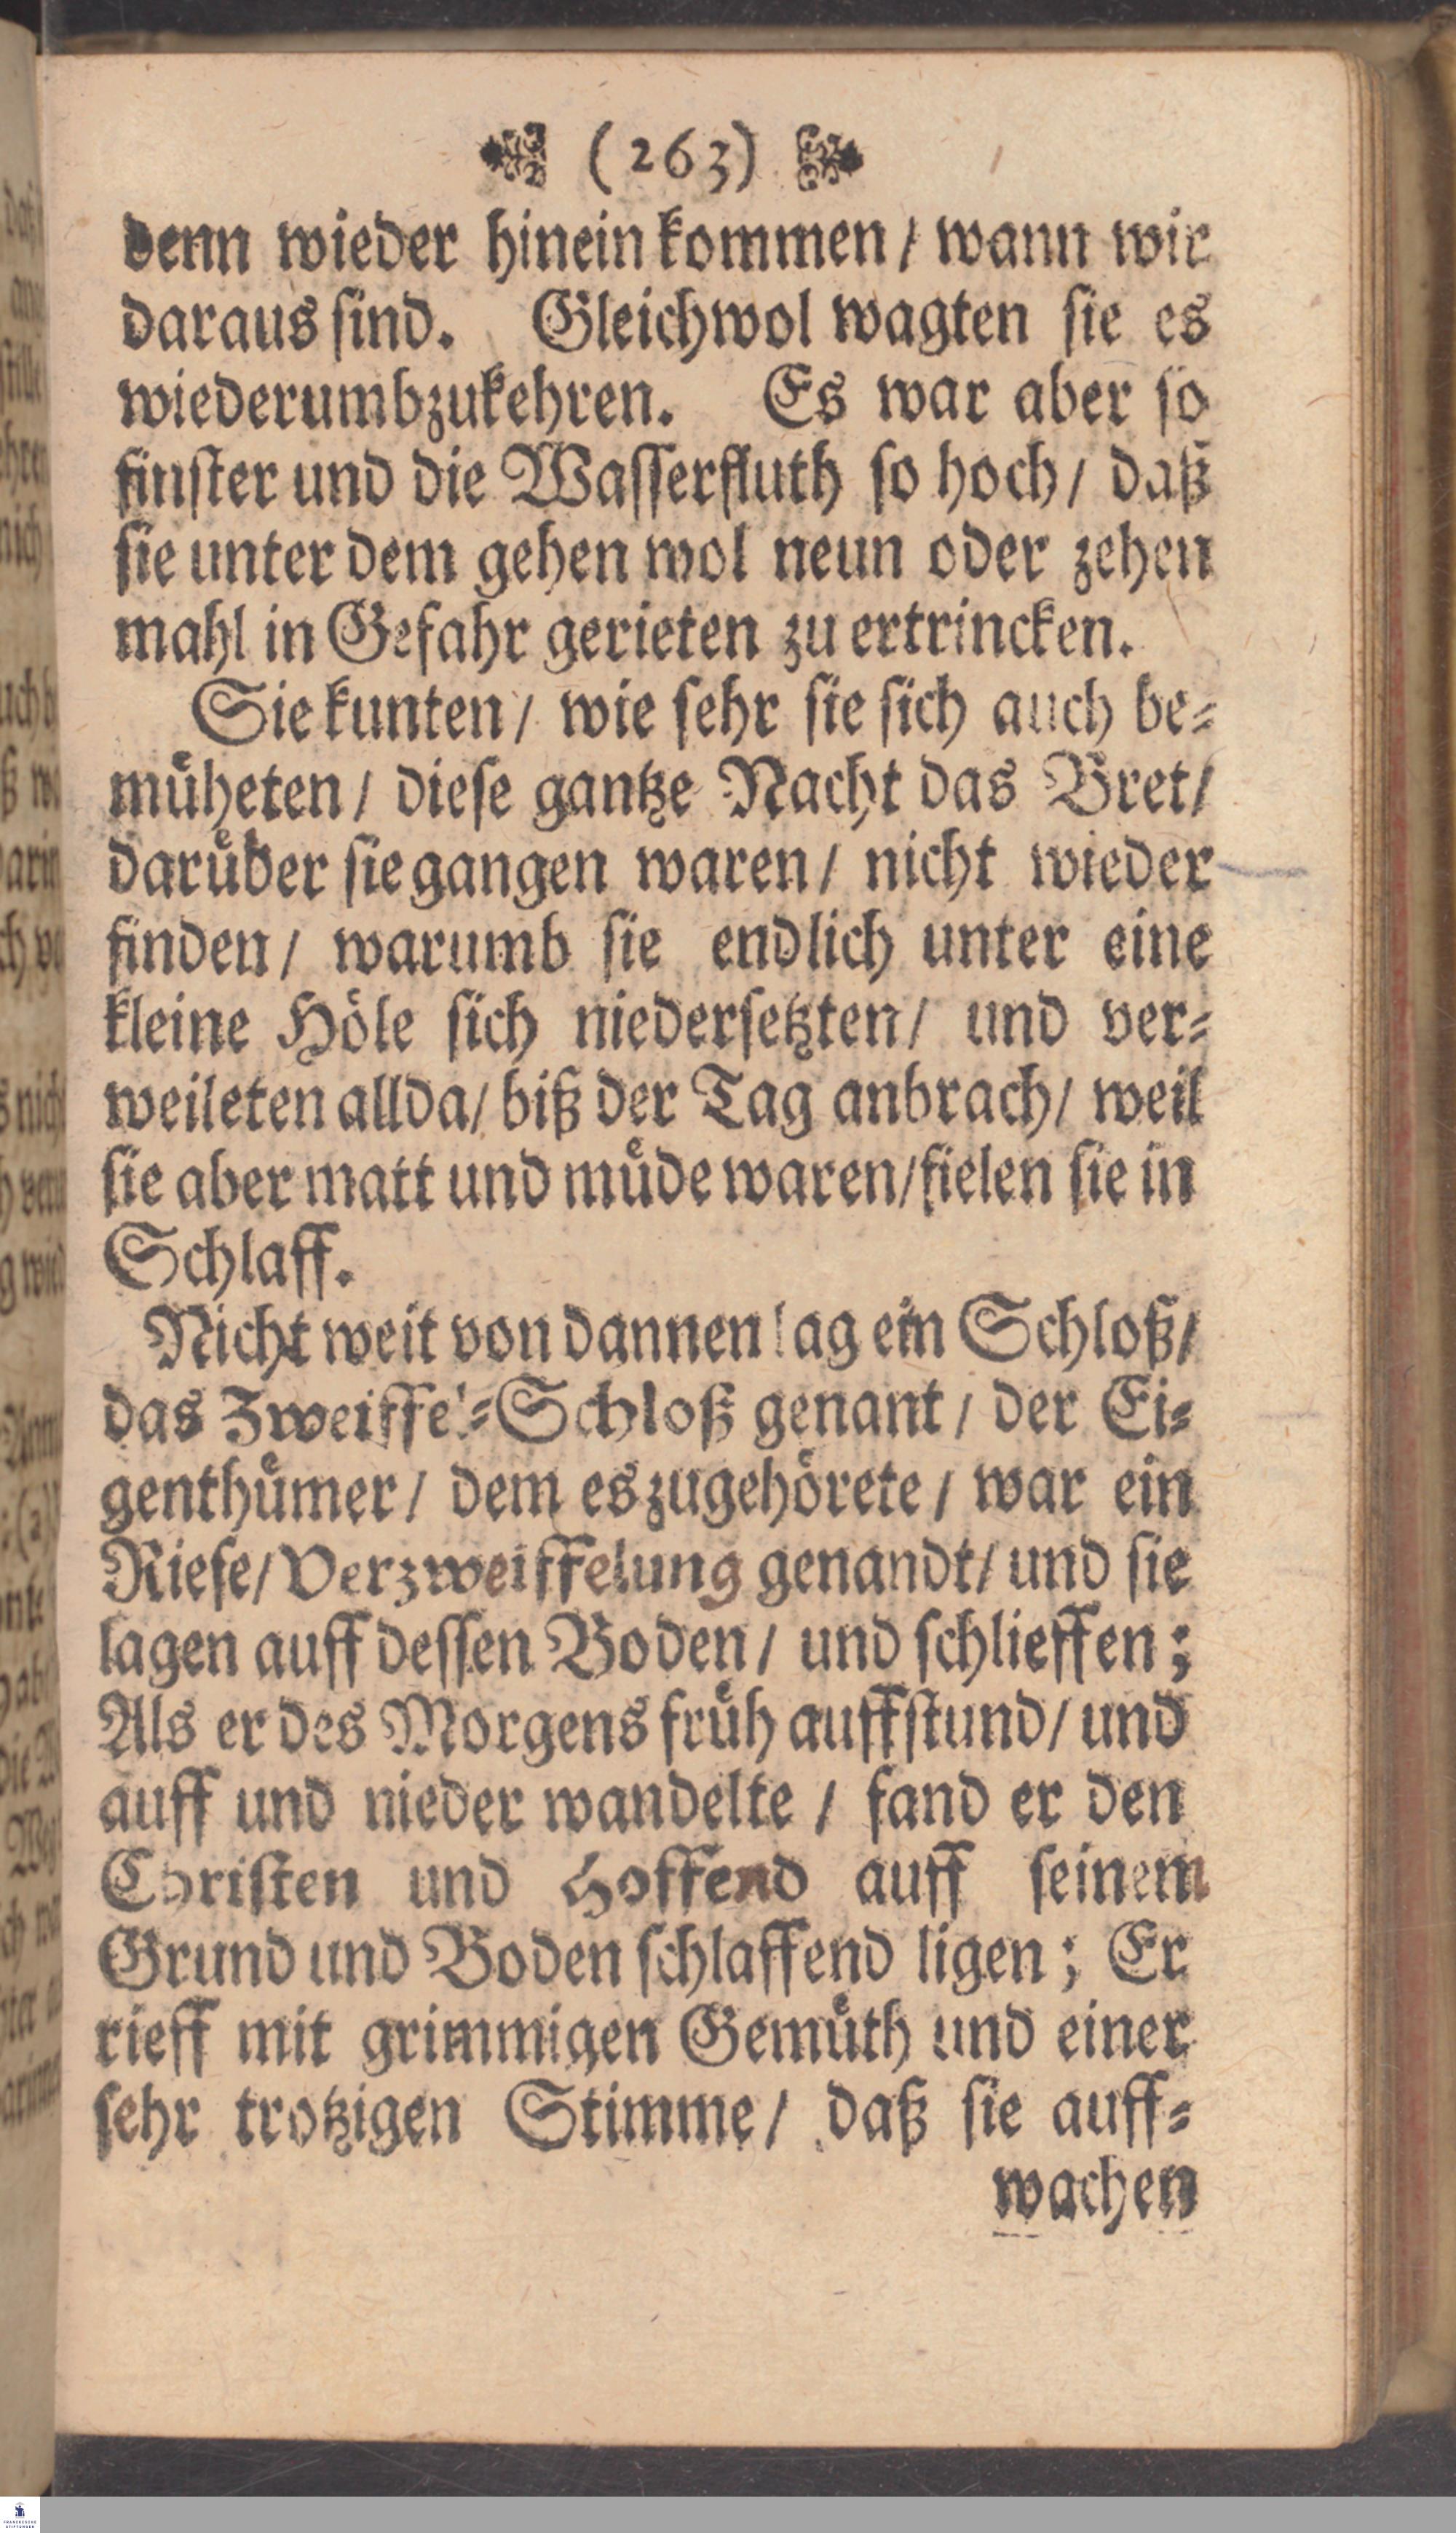 (263)
denn wieder hinein kommen / wann wir
daraus sind. Gleichwol wagten sie es
wiederumbzukehren. Es war aber so
finster und die Wasserfluth so hoch / daß
sie unter dem gehen wol neun oder zehen
mahl in Gefahr gerieten zu ertrincken.
Sie kunten / wie sehr sie sich auch be-
muͤheten / diese gantze Nacht das Bret /
daruͤber sie gangen waren / nicht wieder
finden / warumb sie endlich unter eine
kleine Hoͤle sich niedersetzten / und ver-
weileten allda / biß der Tag anbrach / weil
sie aber matt und muͤde waren / fielen sie in
Schlaff.
Nicht weit von dannen lag ein Schloß /
das Zweiffel-Schloß genant / der Ei-
genthuͤmer / dem es zugehoͤrete / war ein
Riese / Verzweiffelung genandt / und sie
lagen auff dessen Boden / und schlieffen;
Als er des Morgens fruͤh auffstund / und
auff und nieder wandelte / fand er den
Christen und Hoffend auff seinem
Grund und Boden schlaffend ligen; Er
rieff mit grimmigen Gemuͤth und einer
sehr trotzigen Stimme / daß sie auff-
wachen